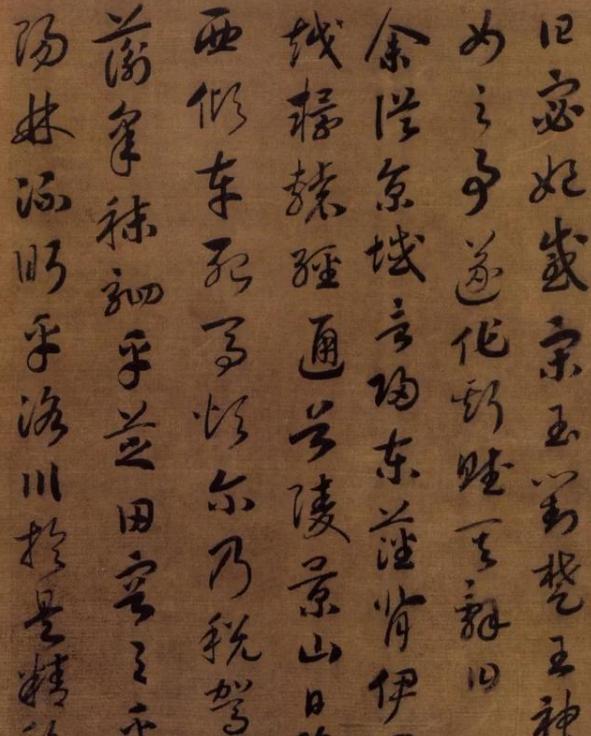 曰宓妃感宋玉對楚王神
女之事遂作斯賦其辭曰
余從京域言歸東藩背伊
越轘轅經通谷陵景山日
西傾車殆馬煩尔乃稅駕
蘅皋秣駟乎芝田容與乎
陽林流眄乎洛川於是精